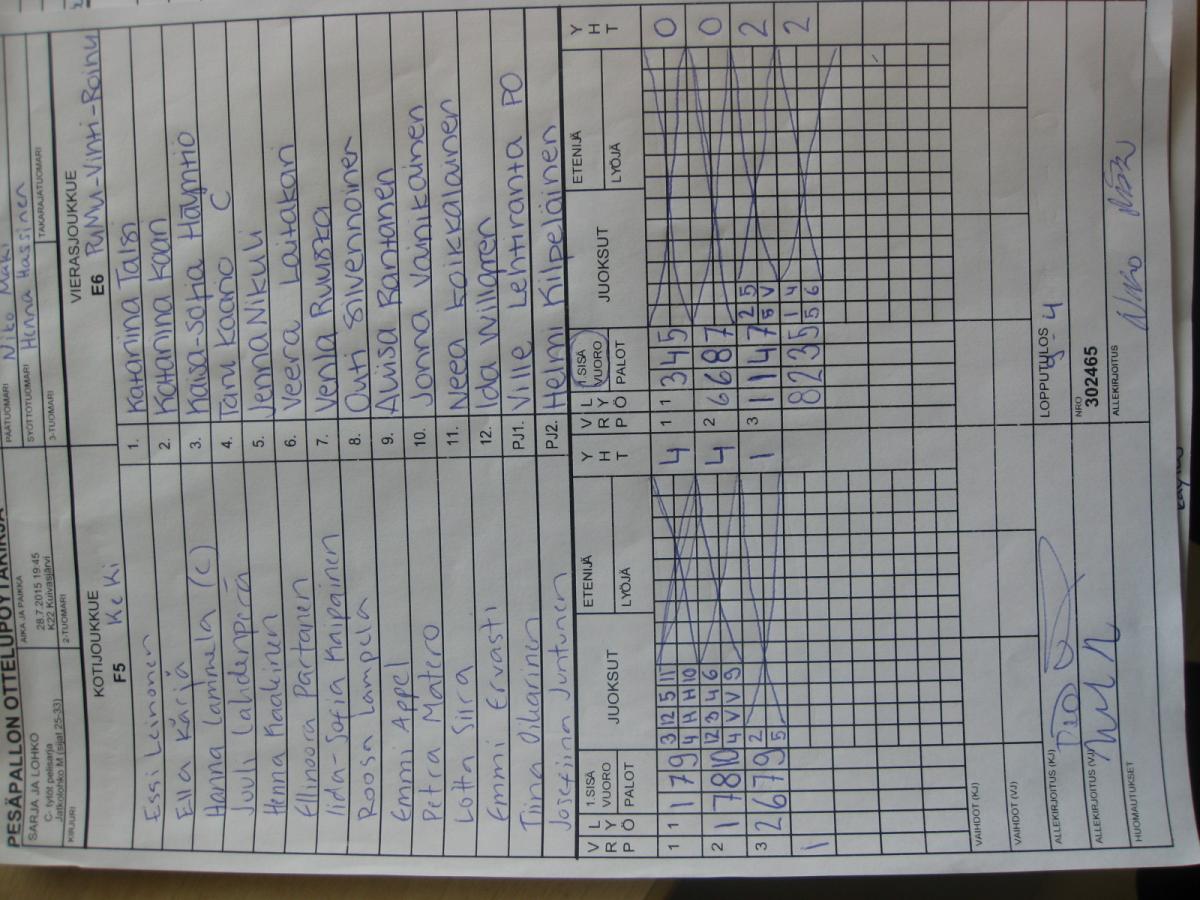 PESÄPALLON OTTELUPÖYTÄKIRJA
SARJA JA LOHKO
C- tytöt pelisarja
Jatkolohko M (sijat 25-33)
AIKA JA PAIKKA
28.7.2015 19:45
K22 Kuivasjärvi
PÄÄTUOMARI Niko Mäki
SYÖTTÖTUOMARI Henna Hassinen
KIRJURI
2-TUOMARI
3-TUOMARI
TAKARAJATUOMARI
KOTIJOUKKUE
F5 KeKi
VIERASJOUKKUE
E6 PuMu-Vinti-Roihu
Essi Leinonen 1. Katariina Talsi
Ella Kärjä 2. Katariina Kaan
Hanna Lammela (C) 3. Kaisa-Sofia Häyntiö
Juuli Lahdenperä 4. Taru Kaario C
Henna Kaakinen 5. Jenna Nikuli
Ellinoora Partanen 6. Veera Laitakari
Iida-Sofia Kaipainen 7. Venla Ruusta
Roosa Lampela 8. Outi Silvennoinen
Emmi Appel 9. Aliisa Rantanen
Petra Matero 10. Jonna Vainikainen
Lotta Siira 11. Neea Koikkalainen
Emmi Ervasti 12. Ida Willgren
Tiina Oikarinen PJ1. Ville Lehtiranta PO
Josefiina Juntunen PJ2. Helmi Kilpeläinen
V L 1.SISÄ JUOKSUT ETENIJÄ Y V L 1.SISÄ JUOKSUT ETENIJÄ Y
R Y VUORO H R Y VUORO H
P Ö PALOT LYÖJÄ T P Ö PALOT LYÖJÄ T
1 1 1 7 9 3 12 5 11 4 1 1 3 4 5 0
4 H H 10
2 1 7 8 10 12 3 4 6 4 2 6 6 8 7 0
4 V V 9
3 2 6 7 9 2 1 3 1 1 4 7 2 5 2
5 5 V
1 8 2 3 5 1 4 2
5 6
VAIHDOT (KJ)
VAIHDOT (VJ)
LOPPUTULOS
9-4
ALLEKIRJOITUS (KJ)
NRO
302465
ALLEKIRJOITUS (VJ)
ALLEKIRJOITUS
HUOMAUTUKSET